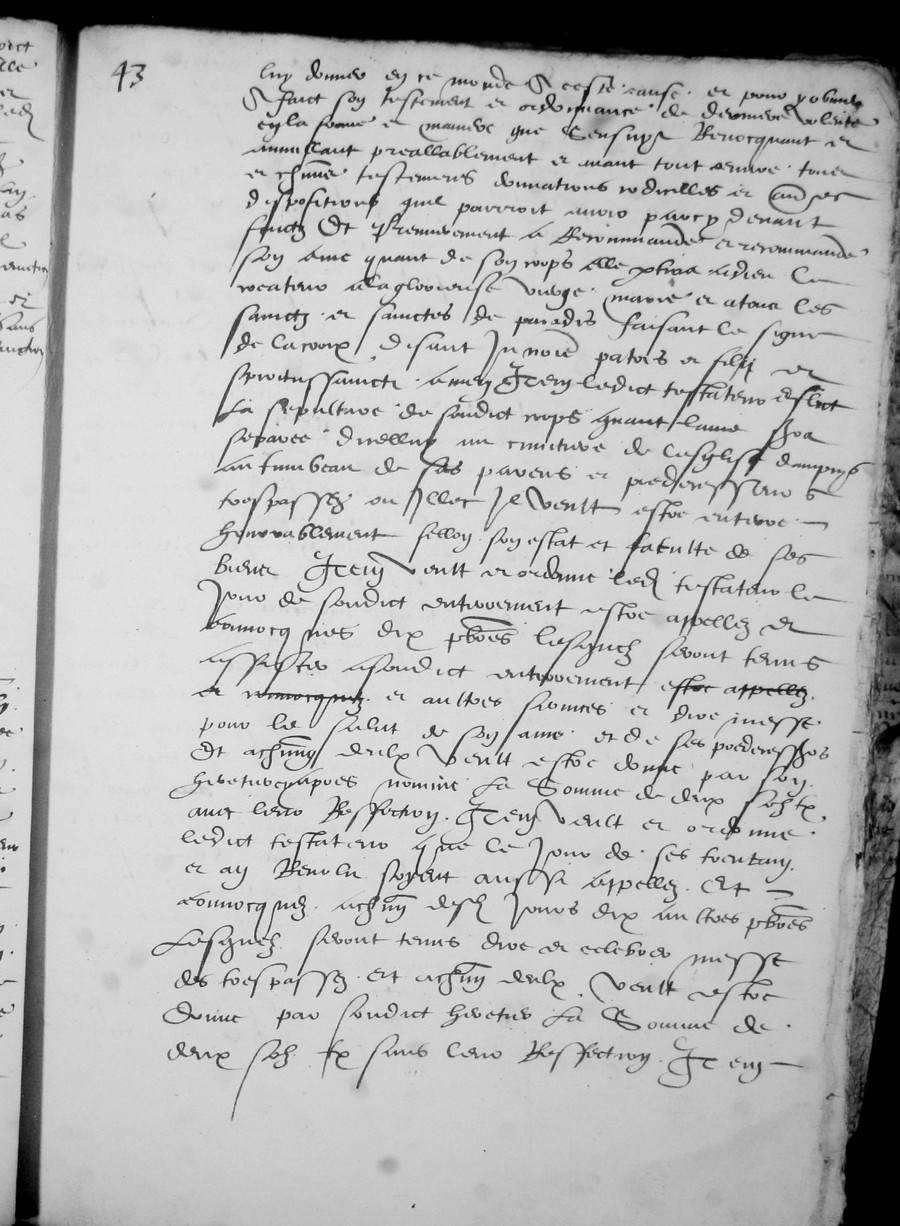 43
luy donner en ce monde A ceste cause et pour y obvier
A faict son testement et ordonnance de derniere volente
en la forme et maniere que sensuyt Revocquant et
annullant preallablement et avant tout aeuvre toutz
et chūns testemens donnations codicilles et aūes
dispositions quil pourroit avoir par cy devant
faictz Et Premierement a Recommande et recommande
son ame quant de son corps elle ptira a dieu le
createur a la glorieuse vierge marie et a tous les
sainctz et sainctes de paradis faisant le signe
de la croix disant In noīe patris et filij et
spiritussancti amen Item ledict testateur eslit
La sepulture de sondict corps quant lame sera
separee dicelluy au cimitiere de lesglise
au tumbeau de ses parens et predecesseurs
trespassez ou Illec Il veult estre enterre
honnorablement sellon son estat et faculte de ses
biens Item veult et ordonne led testateur le
Jour de sondict enterrement estre appellez et
convocqués dix pbrēs lesquelz seront tenus
assister a sondict enterrement estre appellez
et convocquez et aultres services et dire messe
pour le salut de son ame et de ses predecessors
Et a chūng deulx veult estre donne par son
heretier apres nomme La Somme de deux solz tz
avec leur Reffection Item veult et ordonne
ledict testateur que le Jour de ses trentain
et an Revolu soyent aussi appellez Et
convocquez a chūng desd Jours dix aultres pbrēs
Lesquelz seront tenus dire et cellebrer messe
des trespassez et a chūng deulx veult estre
Donne par sondict heretier La Somme de
deux solz tz sans leur Reffection Item